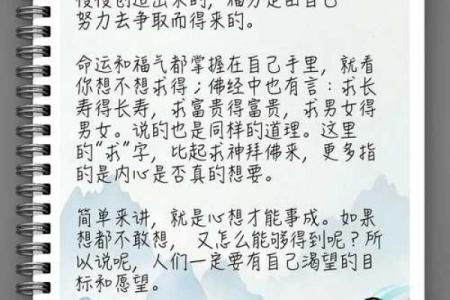 慢慢创造出来的，福分是由自己
努力去争取而得来的。
命运和福气都掌握在自己手里，就看
你想不想求得；佛经中也有言：求长
寿得长寿，求富贵得富贵，求男女得
男女。说的也是同样的道理。这里
的“求”字，比起求神拜佛来，更多指
的是内心是否真的想要。
简单来讲，就是心想才能事成。如果
想都不敢想，又怎么能够得到呢？所
以说呢，人们一定要有自己渴望的目
标和愿望。